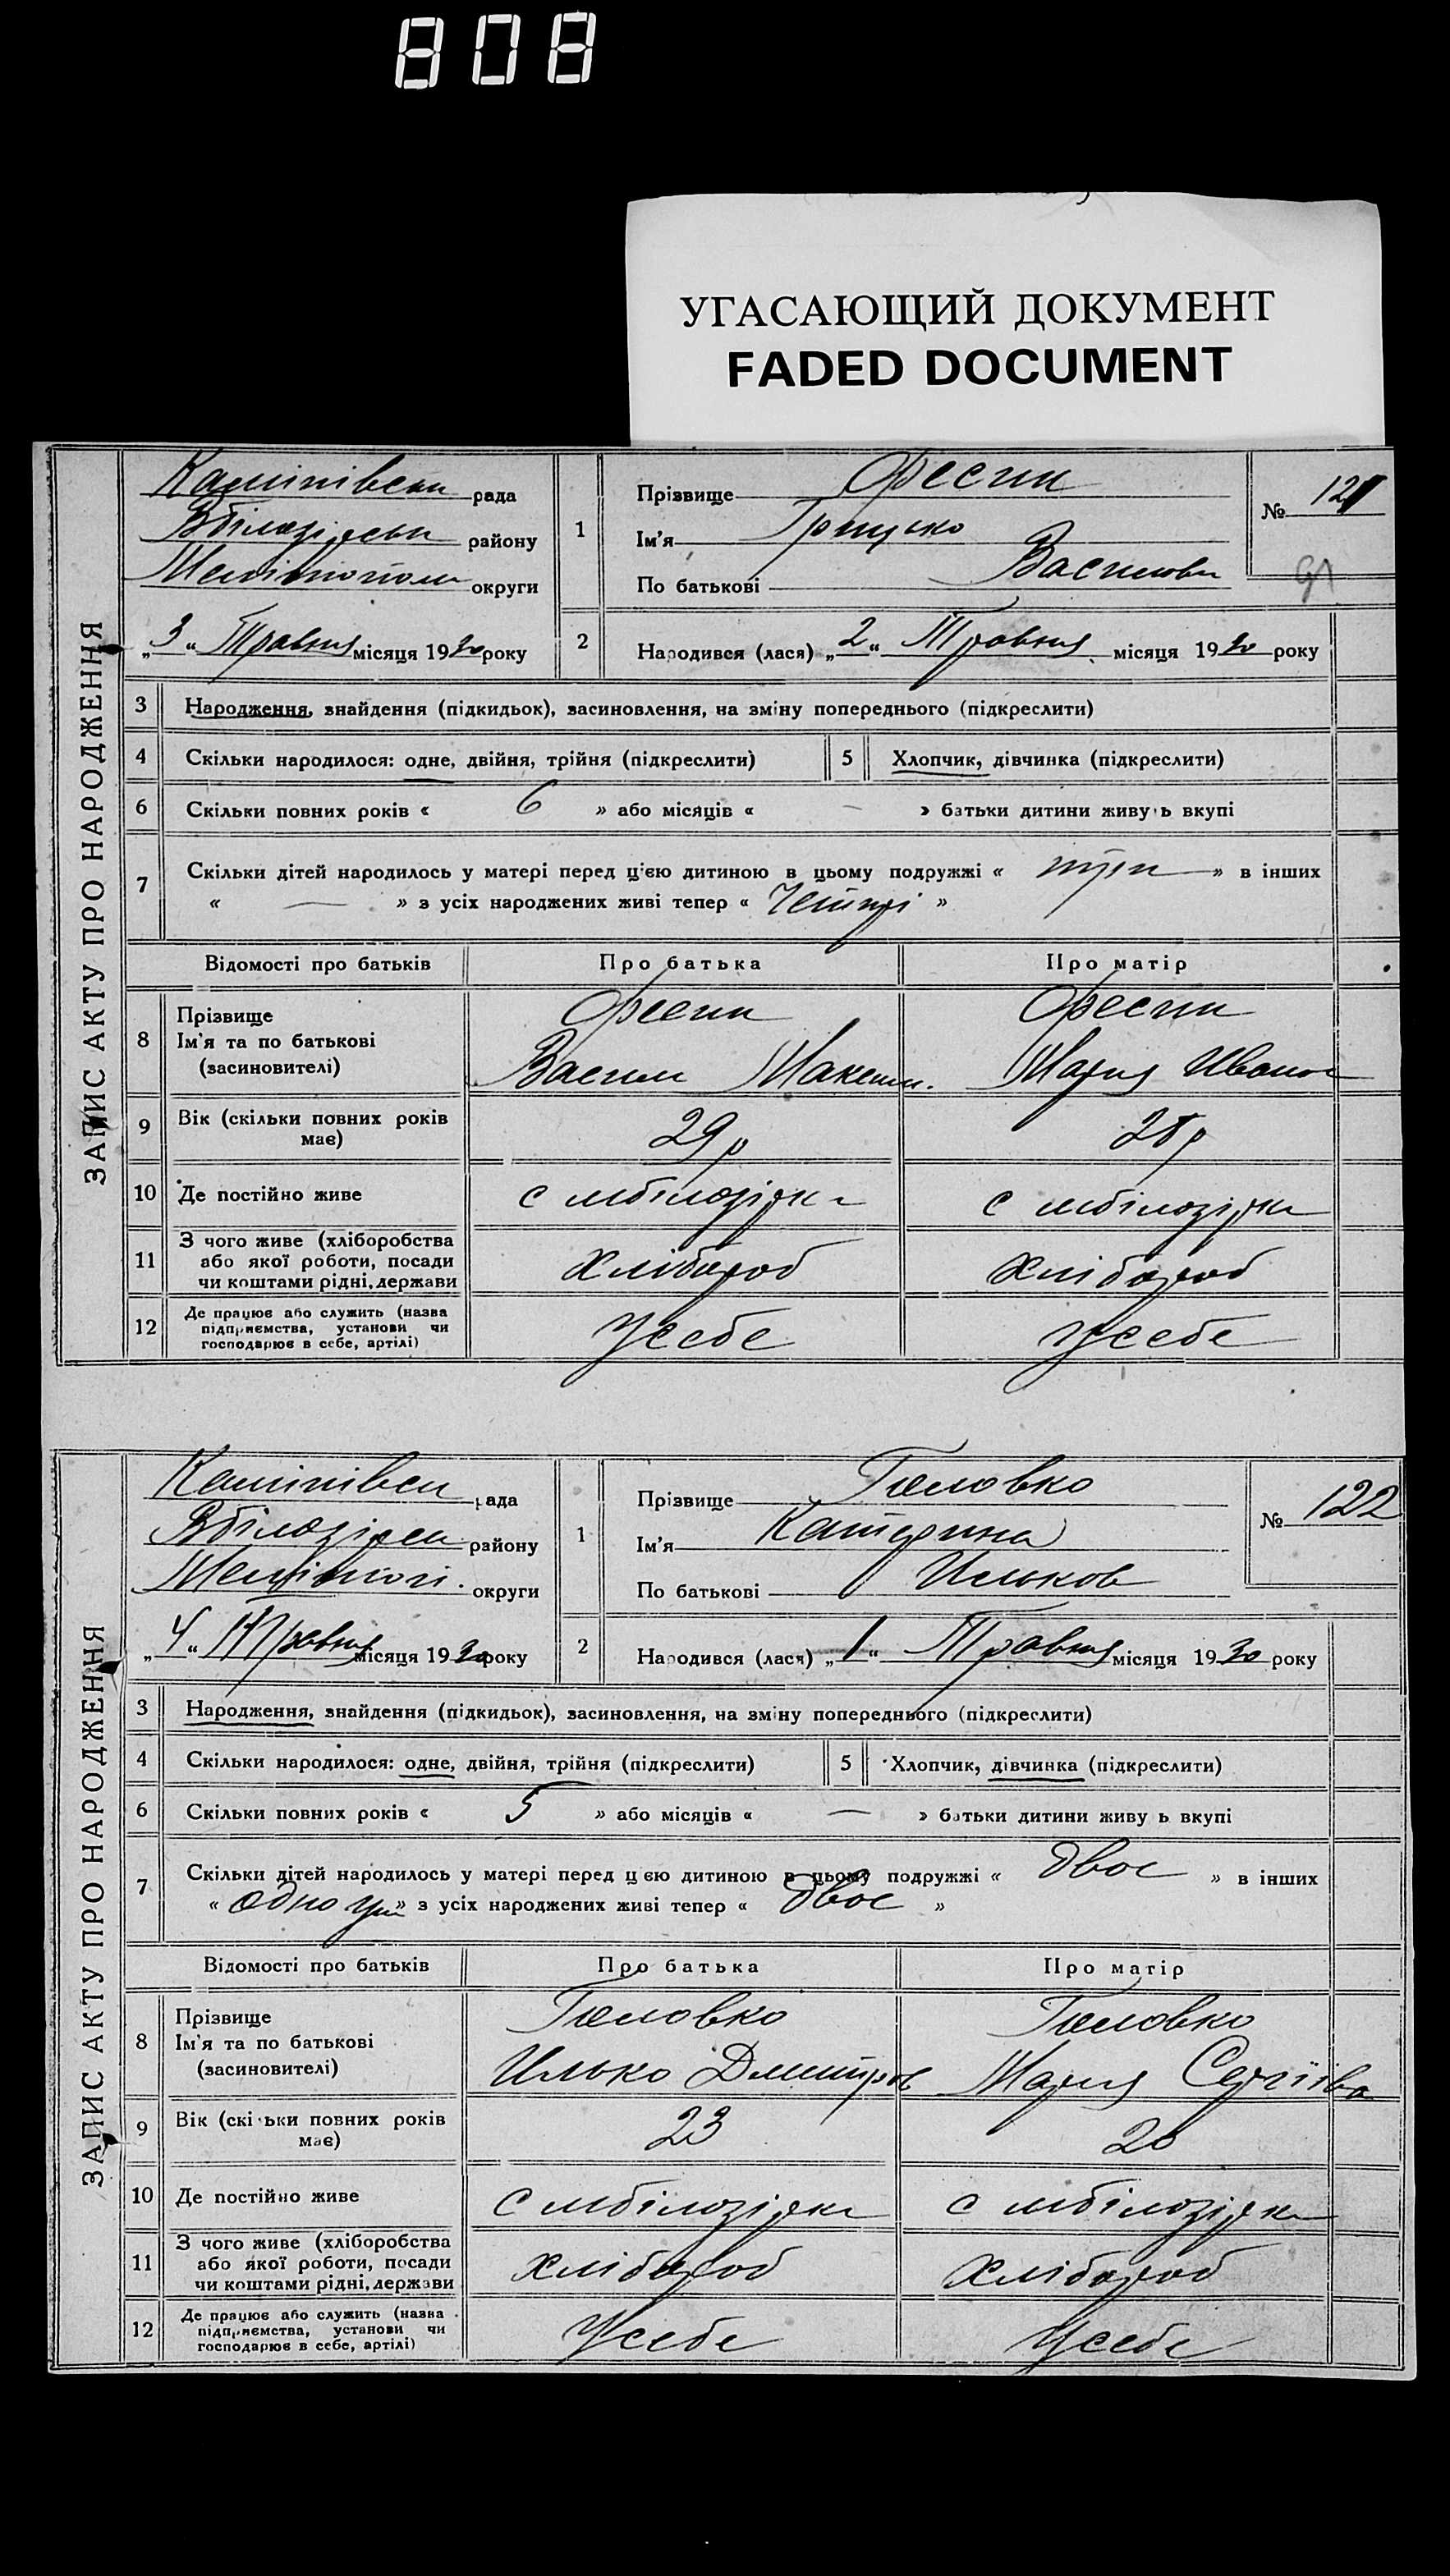 808
УГАСАЮЩИЙ ДОКУМЕНТ
FADED DOCUMENT
ЗАПИС АКТУ ПРО НАРОДЖЕННЯ
рада
району
округи
„3“ Травня місяця 1930 року
1
Прізвище Фесик
Ім'я Грицько
По батькові Васильов
№ 121
2
Народився (лася) „2“ Травня місяця 1930 року
3 Народження, знайдення (підкидьок), засиновлення, на зміну попереднього (підкреслити)
4 Скільки народилося: одне, двійня, трійня (підкреслити)
5 Хлопчик, дівчинка (підкреслити)
6 Скільки повних років « 6 » або місяців « — » батьки дитини живуть вкупі
7 Скільки дітей народилось у матері перед цією дитиною в цьому подружжі « три » в інших
« — » з усіх народжених живі тепер « »
Відомості про батьків Про батька Про матір
8 Прізвище
Ім'я та по батькові
(засиновителі)
Фесик
Василь Максим.
Фесик
Мария Иванов
9 Вік (скільки повних років має)
29 р
28 р
10 Де постійно живе
с мбілозірка
с мбілозірка
11 З чого живе (хліборобства
або якої роботи, посади
чи коштами рідні, держави
Хлібороб
Хлібороб
12 Де працює або служить (назва
підприємства, установи чи
господарює в себе, артілі)
У себе
У себе
ЗАПИС АКТУ ПРО НАРОДЖЕННЯ
рада
району
округи
„4“ Травня місяця 1930 року
1
Прізвище Головко
Ім'я Катерина
По батькові Ильков
№ 122
2
Народився (лася) „1“ Травня місяця 1930 року
3 Народження, знайдення (підкидьок), засиновлення, на зміну попереднього (підкреслити)
4 Скільки народилося: одне, двійня, трійня (підкреслити)
5 Хлопчик, дівчинка (підкреслити)
6 Скільки повних років « 5 » або місяців « — » батьки дитини живуть вкупі
7 Скільки дітей народилось у матері перед цією дитиною в цьому подружжі « двос » в інших
« одно » з усіх народжених живі тепер « двос »
Відомості про батьків Про батька Про матір
8 Прізвище
Ім'я та по батькові
(засиновителі)
Головко
Илько Дмитров
Головко
Мария Сергіїва
9 Вік (скільки повних років має)
23
20
10 Де постійно живе
с мбілозірка
с мбілозірка
11 З чого живе (хліборобства
або якої роботи, посади
чи коштами рідні, держави
Хлібороб
Хлібороб
12 Де працює або служить (назва
підприємства, установи чи
господарює в себе, артілі)
У себе
У себе